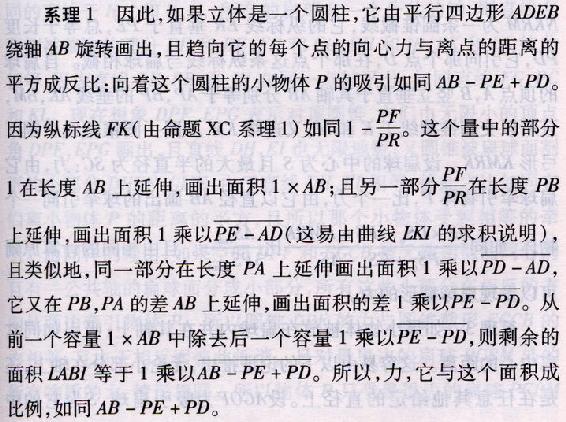 系理 1　因此,如果立体是一个圆柱,它由平行四边形 ADEB
绕轴 AB 旋转画出,且趋向它的每个点的向心力与离点的距离的
平方成反比:向着这个圆柱的小物体 P 的吸引如同 AB－PE＋PD。
因为纵标线 FK(由命题 XC 系理 1)如同 1－PF/PR。这个量中的部分
1 在长度 AB 上延伸,画出面积 1×AB;且另一部分PF/PR在长度 PB
上延伸,画出面积 1 乘以PE－AD(这易由曲线 LKI 的求积说明),
且类似地,同一部分在长度 PA 上延伸画出面积 1 乘以PD－AD,
它又在 PB,PA 的差 AB 上延伸,画出面积的差 1 乘以PE－PD。从
前一个容量 1×AB 中除去后一个容量 1 乘以PE－PD,则剩余的
面积 LABI 等于 1 乘以AB－PE＋PD。所以,力,它与这个面积成
比例,如同 AB－PE＋PD。